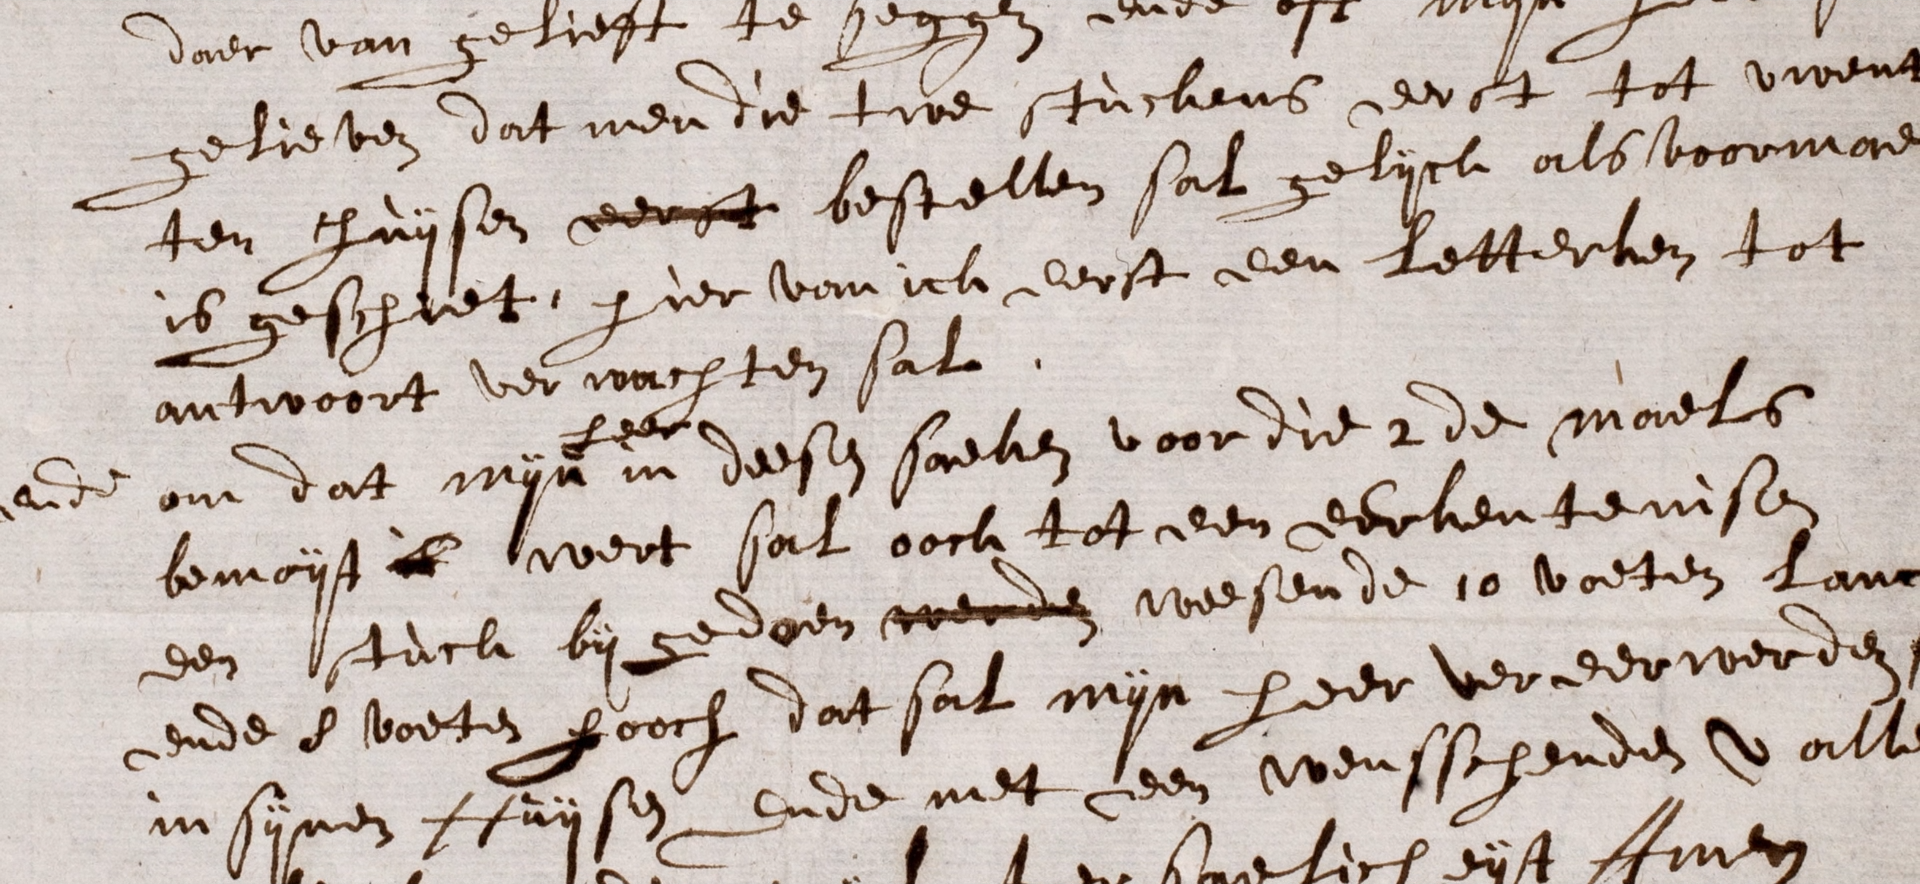 daer van gelieft te seggen ende oft mijn
gelieven dat men die twe stuckens eerst tot uwent
ten huijsen eerst bestellen sal gelijck als voormae
is geschiet, hier van ick eerst een letterken tot
antwoort verwachten sal.
ende om dat mijn heer in deesen saeken voor die 2de maels
bemoijt wert sal oock tot een eerkentenisen
een stuck bij gedaen werden weesende 10 voeten lanc
ende 8 voeten hooch dat sal mijn heer vereer werden
in sijnen Huijsen ende met een wensschenden U alle
saelicheijt Amen